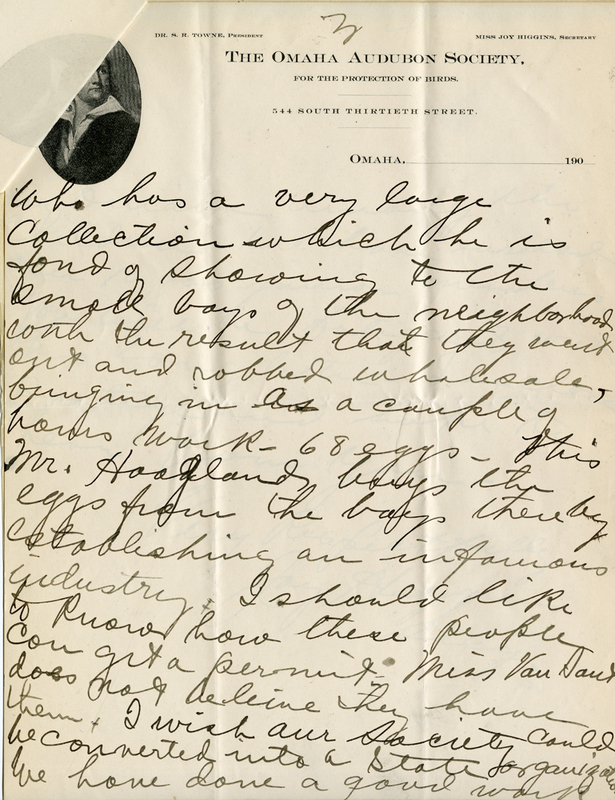 2
DR. S. R. TOWNE, PRESIDENT
MISS JOY HIGGINS, SECRETARY
THE OMAHA AUDUBON SOCIETY,
FOR THE PROTECTION OF BIRDS.
544 SOUTH THIRTIETH STREET.
OMAHA, 190
who has a very large
Collection which he is
fond of showing to the
small boys of the neighborhood
with the result that they went
out and robbed wholesale,
bringing in as a couple of
hours work - 68 eggs - This
Mr. Hoagland buys the
eggs from the boys thereby
establishing an infamous
industry. I should like
to know how these people
can get a permit. Miss Van Sant
does not believe they have
them. I wish our Society could
be converted into a State organiza
We have done a good work